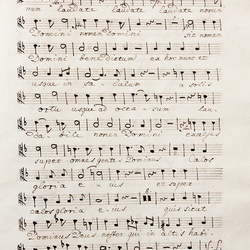 men laudate laudate nomen
Domini nomen Domini sit nomen
Domini benedictum ex hoc nunc et
usque in sæculum a solis
ortu usque ad occasum lau-
dabile nomen Domini excelsus
super omnes gentes Dominus Cœlos
gloria eius et super
cœlos gloria eius quis sicut
Dominus Deus noster qui in altis habi-